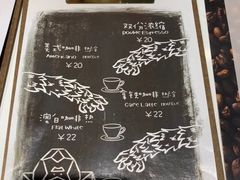 双份浓缩
Double Espresso
¥20
美式咖啡 热/冷
Americano Hot/Ice
¥20
拿铁咖啡 热/冷
Cafe Latte Hot/Ice
¥22
澳白咖啡 热
Flat White
¥22